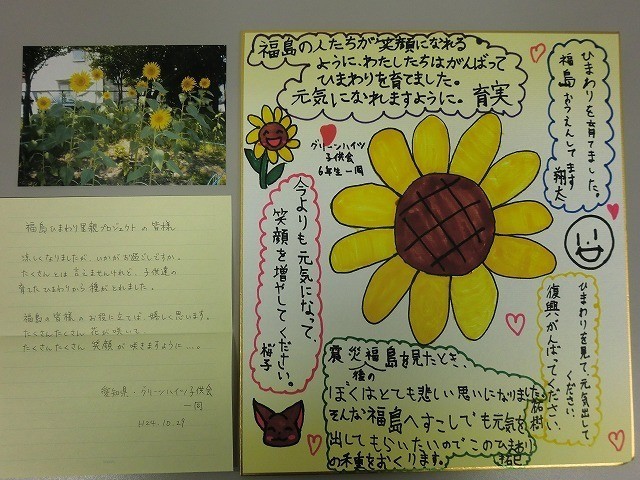 福島ひまわり里親プロジェクトの皆様
涼しくなりましたが、いかがお過ごしですか。
たくさんとは言えませんけれど、子供達の
育てたひまわりから、種がとれました。
福島の皆様のお役に立てば、嬉しく思います。
たくさんたくさん花が咲いて、
たくさんたくさん笑顔が咲きますように…。
愛知県・グリーンハイツ子供会
一同
H24.10.29
福島の人たちが笑顔になれる
ように、わたしたちはがんばって
ひまわりを育てました。
元気になれますように。育実
グリーンハイツ
子供会
6年生一同
ひまわりを育てました。
福島おうえんしてます
翔太
今よりも元気になって、
笑顔を増やしてください。
桜子
ひまわりを見て、元気出して
ください。
復興、がんばってください。
祐樹
震災後の福島を見たとき、
ぼくはとても悲しい思いになりました。
そんな福島へすこしでも元気を
出してもらいたいのでこのひまわり
の種をおくります。
拓巳